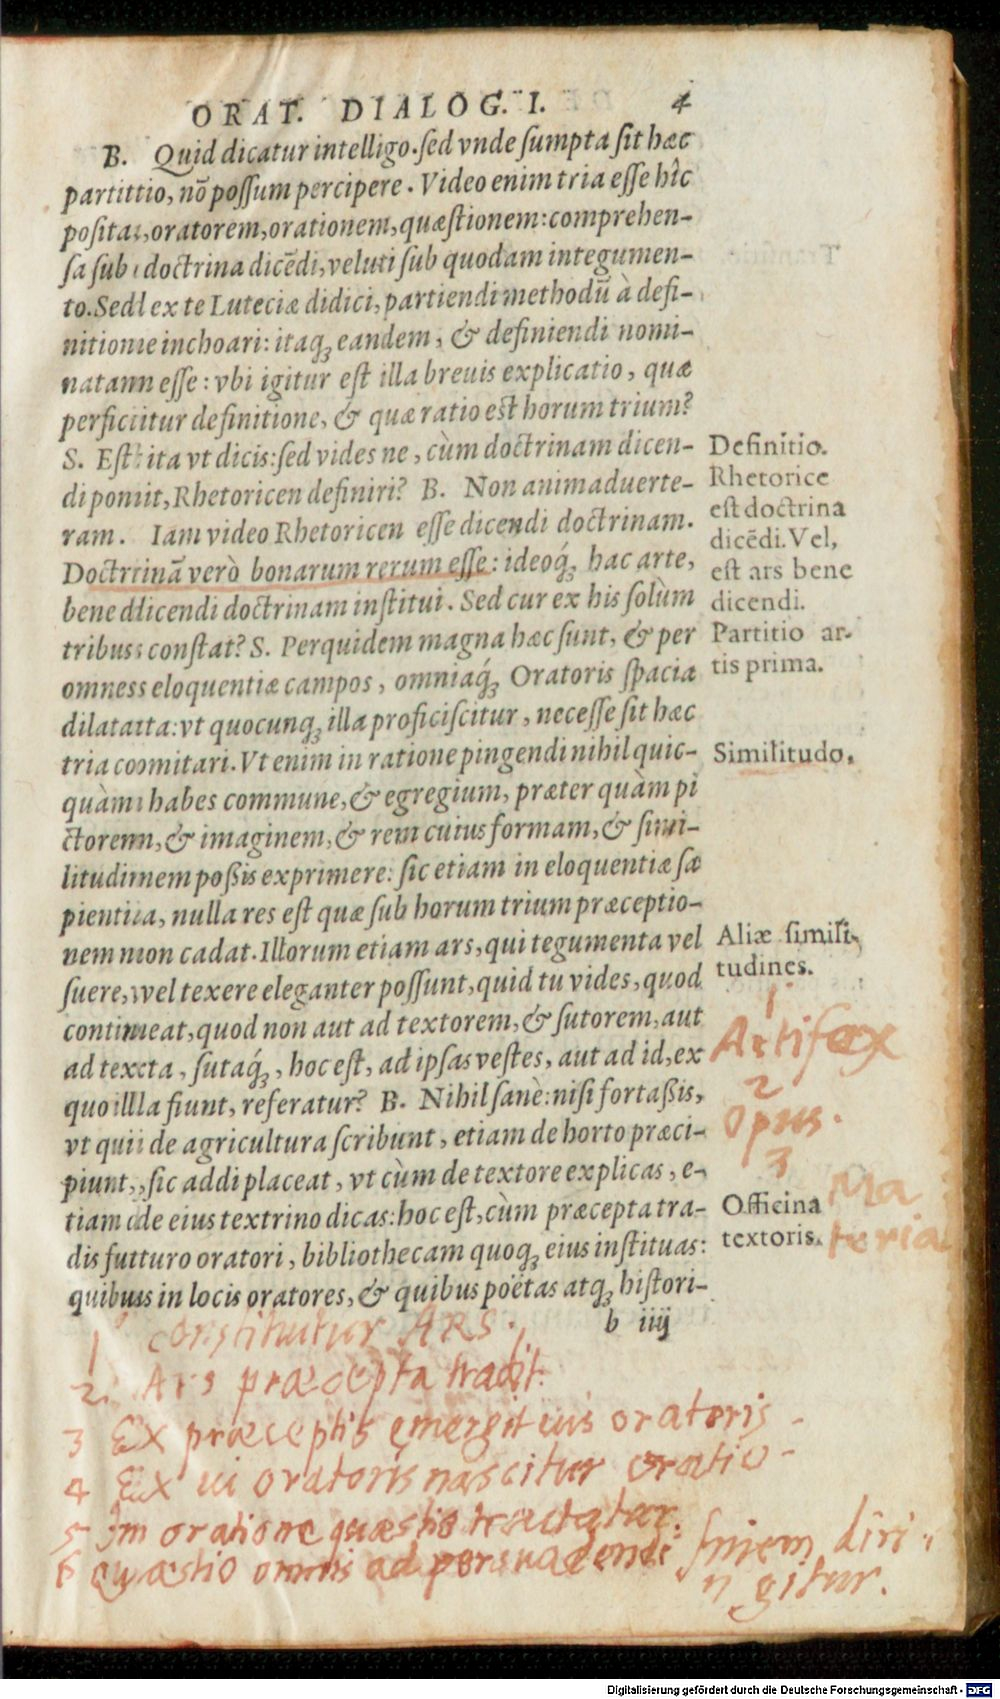 ORAT. DIALOG. I. 4
B. Quid dicatur intelligo. sed vnde sumpta sit hæc
partitio, nō possum percipere. Video enim tria esse hîc
posita, oratorem, orationem, quæstionem: comprehen-
sa sub doctrina dicēdi, veluti sub quodam integumen-
to. Sed ex te Luteciæ didici, partiendi methodū à defi-
nitione inchoari: itaq; eandem, & definiendi nomi-
natam esse: vbi igitur est illa breuis explicatio, quæ
perficitur definitione, & quæ ratio est horum trium?
S. Est ita vt dicis: sed vides ne, cùm doctrinam dicen-
di ponit, Rhetoricen definiri? B. Non animaduerte-
ram. Iam video Rhetoricen esse dicendi doctrinam.
Doctrinā verò bonarum rerum esse: ideoq́; hac arte,
bene dicendi doctrinam institui. Sed cur ex his solùm
tribus constat? S. Perquidem magna hæc sunt, & per
omnes eloquentiæ campos, omniaq́; Oratoris spacia
dilatata: vt quocunq; illa proficiscitur, necesse sit hæc
tria comitari. Vt enim in ratione pingendi nihil quic-
quàm habes commune, & egregium, præter quàm pi
ctorem, & imaginem, & rem cuius formam, & simi-
litudinem poßis exprimere: sic etiam in eloquentiæ sa
pientia, nulla res est quæ sub horum trium præceptio-
nem non cadat. Illorum etiam ars, qui tegumenta vel
suere, vel texere eleganter possunt, quid tu vides, quod
contineat, quod non aut ad textorem, & sutorem, aut
ad texta, sutaq́;, hoc est, ad ipsas vestes, aut ad id, ex
quo illa fiunt, referatur? B. Nihil sanè: nisi fortaßis,
vt qui de agricultura scribunt, etiam de horto præci-
piunt, sic addi placeat, vt cùm de textore explicas, e-
tiam de eius textrino dicas: hoc est, cùm præcepta tra-
dis futuro oratori, bibliothecam quoq; eius instituas:
quibus in locis oratores, & quibus poëtas atq; histori-
b iiij
Definitio.
Rhetorice
est doctrina
dicēdi. Vel,
est ars bene
dicendi.
Partitio ar-
tis prima.
Similitudo.
Aliæ simili-
tudines.
1
Artifex
2
Opus.
3
Ma
teria
Officina
textoris.
1 Constituitur ARS.
2. Ars præcepta tradit.
3 Ex præceptis emergit vis oratoris.
4 Ex vi oratoris nascitur oratio.
5 In oratione quæstio tractatur.
6 Quæstio omnis ad persuadendi finem diri-
gitur.